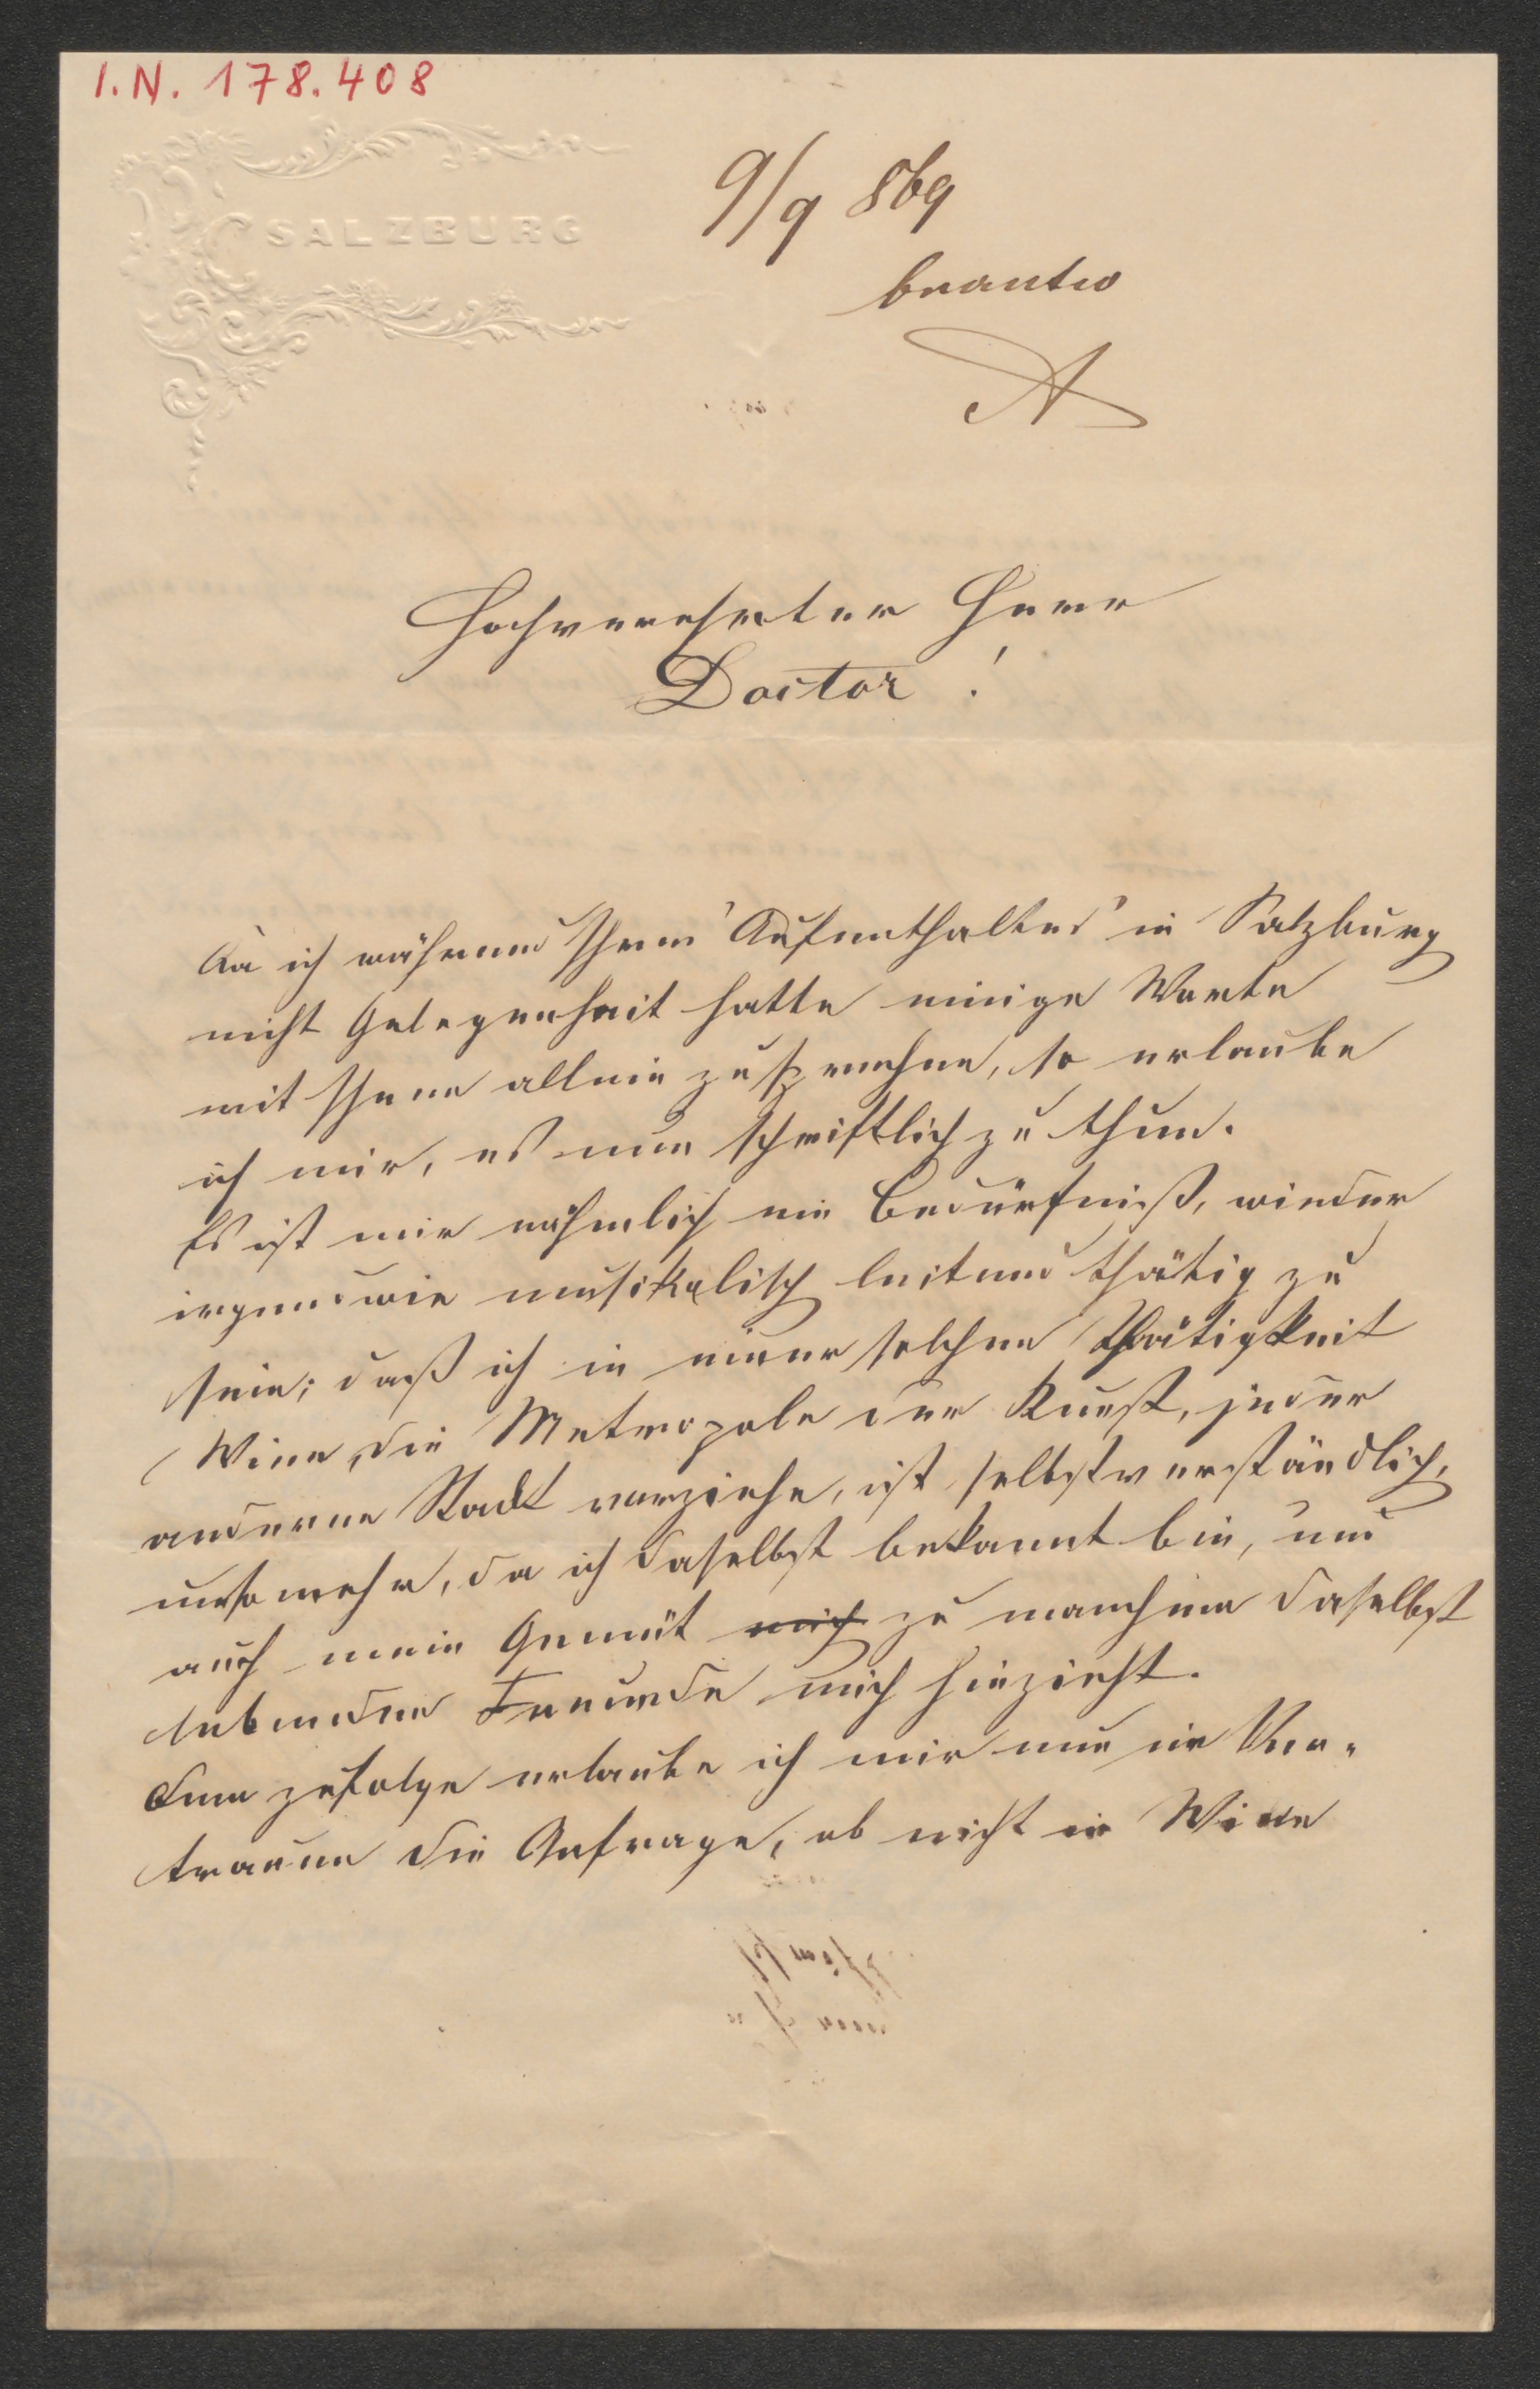 I.N. 178.408
SALZBURG
9/9 869
beantw
A
Hochverehrter Herr
Doctor!
Da ich während Ihres Aufenthaltes in Salzburg
nicht Gelegenheit hatte einige Worte
mit Ihnen allein zu sprechen, so erlaube
ich mir, es nun schriftlich zu thun.
Es ist mir nähmlich ein Bedürfniß, wieder
irgendwie musikalisch leitend thätig zu
sein; daß ich in einer solchen Thätigkeit
Wien, die Metropole der Kunst, jeder
anderen Stadt vorziehe, ist selbstverständlich,
umso mehr, da ich daselbst bekannt bin, und
auch mein Gemüt mich zu manchem daselbst
lebenden Freunde mich hinzieht.
Dem zufolge erlaube ich mir nun im Ver-
trauen die Anfrage, ob nicht in Wien